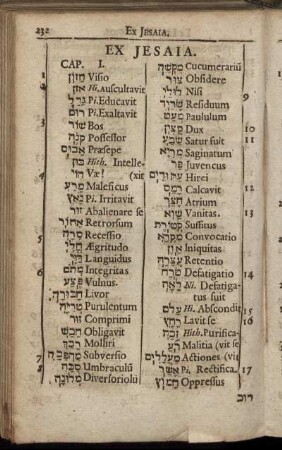 232 EX JESAIA.
EX JESAIA.
CAP. I.
1 חָזוֹן Visio
2 אזן Hi. Auscultavit
גדל Pi. Educavit
רום Pi. Exaltavit
3 שׁוֹר Bos
קֹנֶה Possessor
אֵבוּס Præsepe
בון Hith. Intelle-
4 הוֹי Væ! (xit
מֵרַע Maleficus
נאץ Pi. Irritavit
זור Abalienare se
אָחוֹר Retrorsum
5 סָרָה Recessio
חֳלִי Ægritudo
דַּוָּי Languidus
6 מְתֹם Integritas
פֶּצַע Vulnus.
חַבּוּרָה Livor
טְרִיָּה Purulentum
זור Comprimi
חבש Obligavit
רכך Molliri
7 מַהְפֵּכָה Subversio
8 סֻכָּה Umbraculū
מְלוּנָה Diversoriolū
מִקְשָׁה Cucumerariū
צור Obsidere
9 לוּלֵי Nisi
שָׂרִיד Residuum
מְעָט Paululum
10 קָצִין Dux
11 שבע Satur fuit
מְרִיא Saginatum
פַּר Juvencus
עַתּוּדִים Hirci
12 רמס Calcavit
חָצֵר Atrium
13 שָׁוְא Vanitas.
קְטֹרֶת Suffitus
מִקְרָא Convocatio
אָוֶן Iniquitas
עֲצָרָה Retentio
14 טֹרַח Defatigatio
לאה Ni. Defatiga-
tus fuit
15 עלם Hi. Abscondit
16 רחץ Lavit se
זכה Hith. Purifica-
רֹעַ Malitia (vit se
מַעֲלָלִים Actiones (vit
17 אשר Pi. Rectifica-
חָמוֹץ Oppressus
רוב